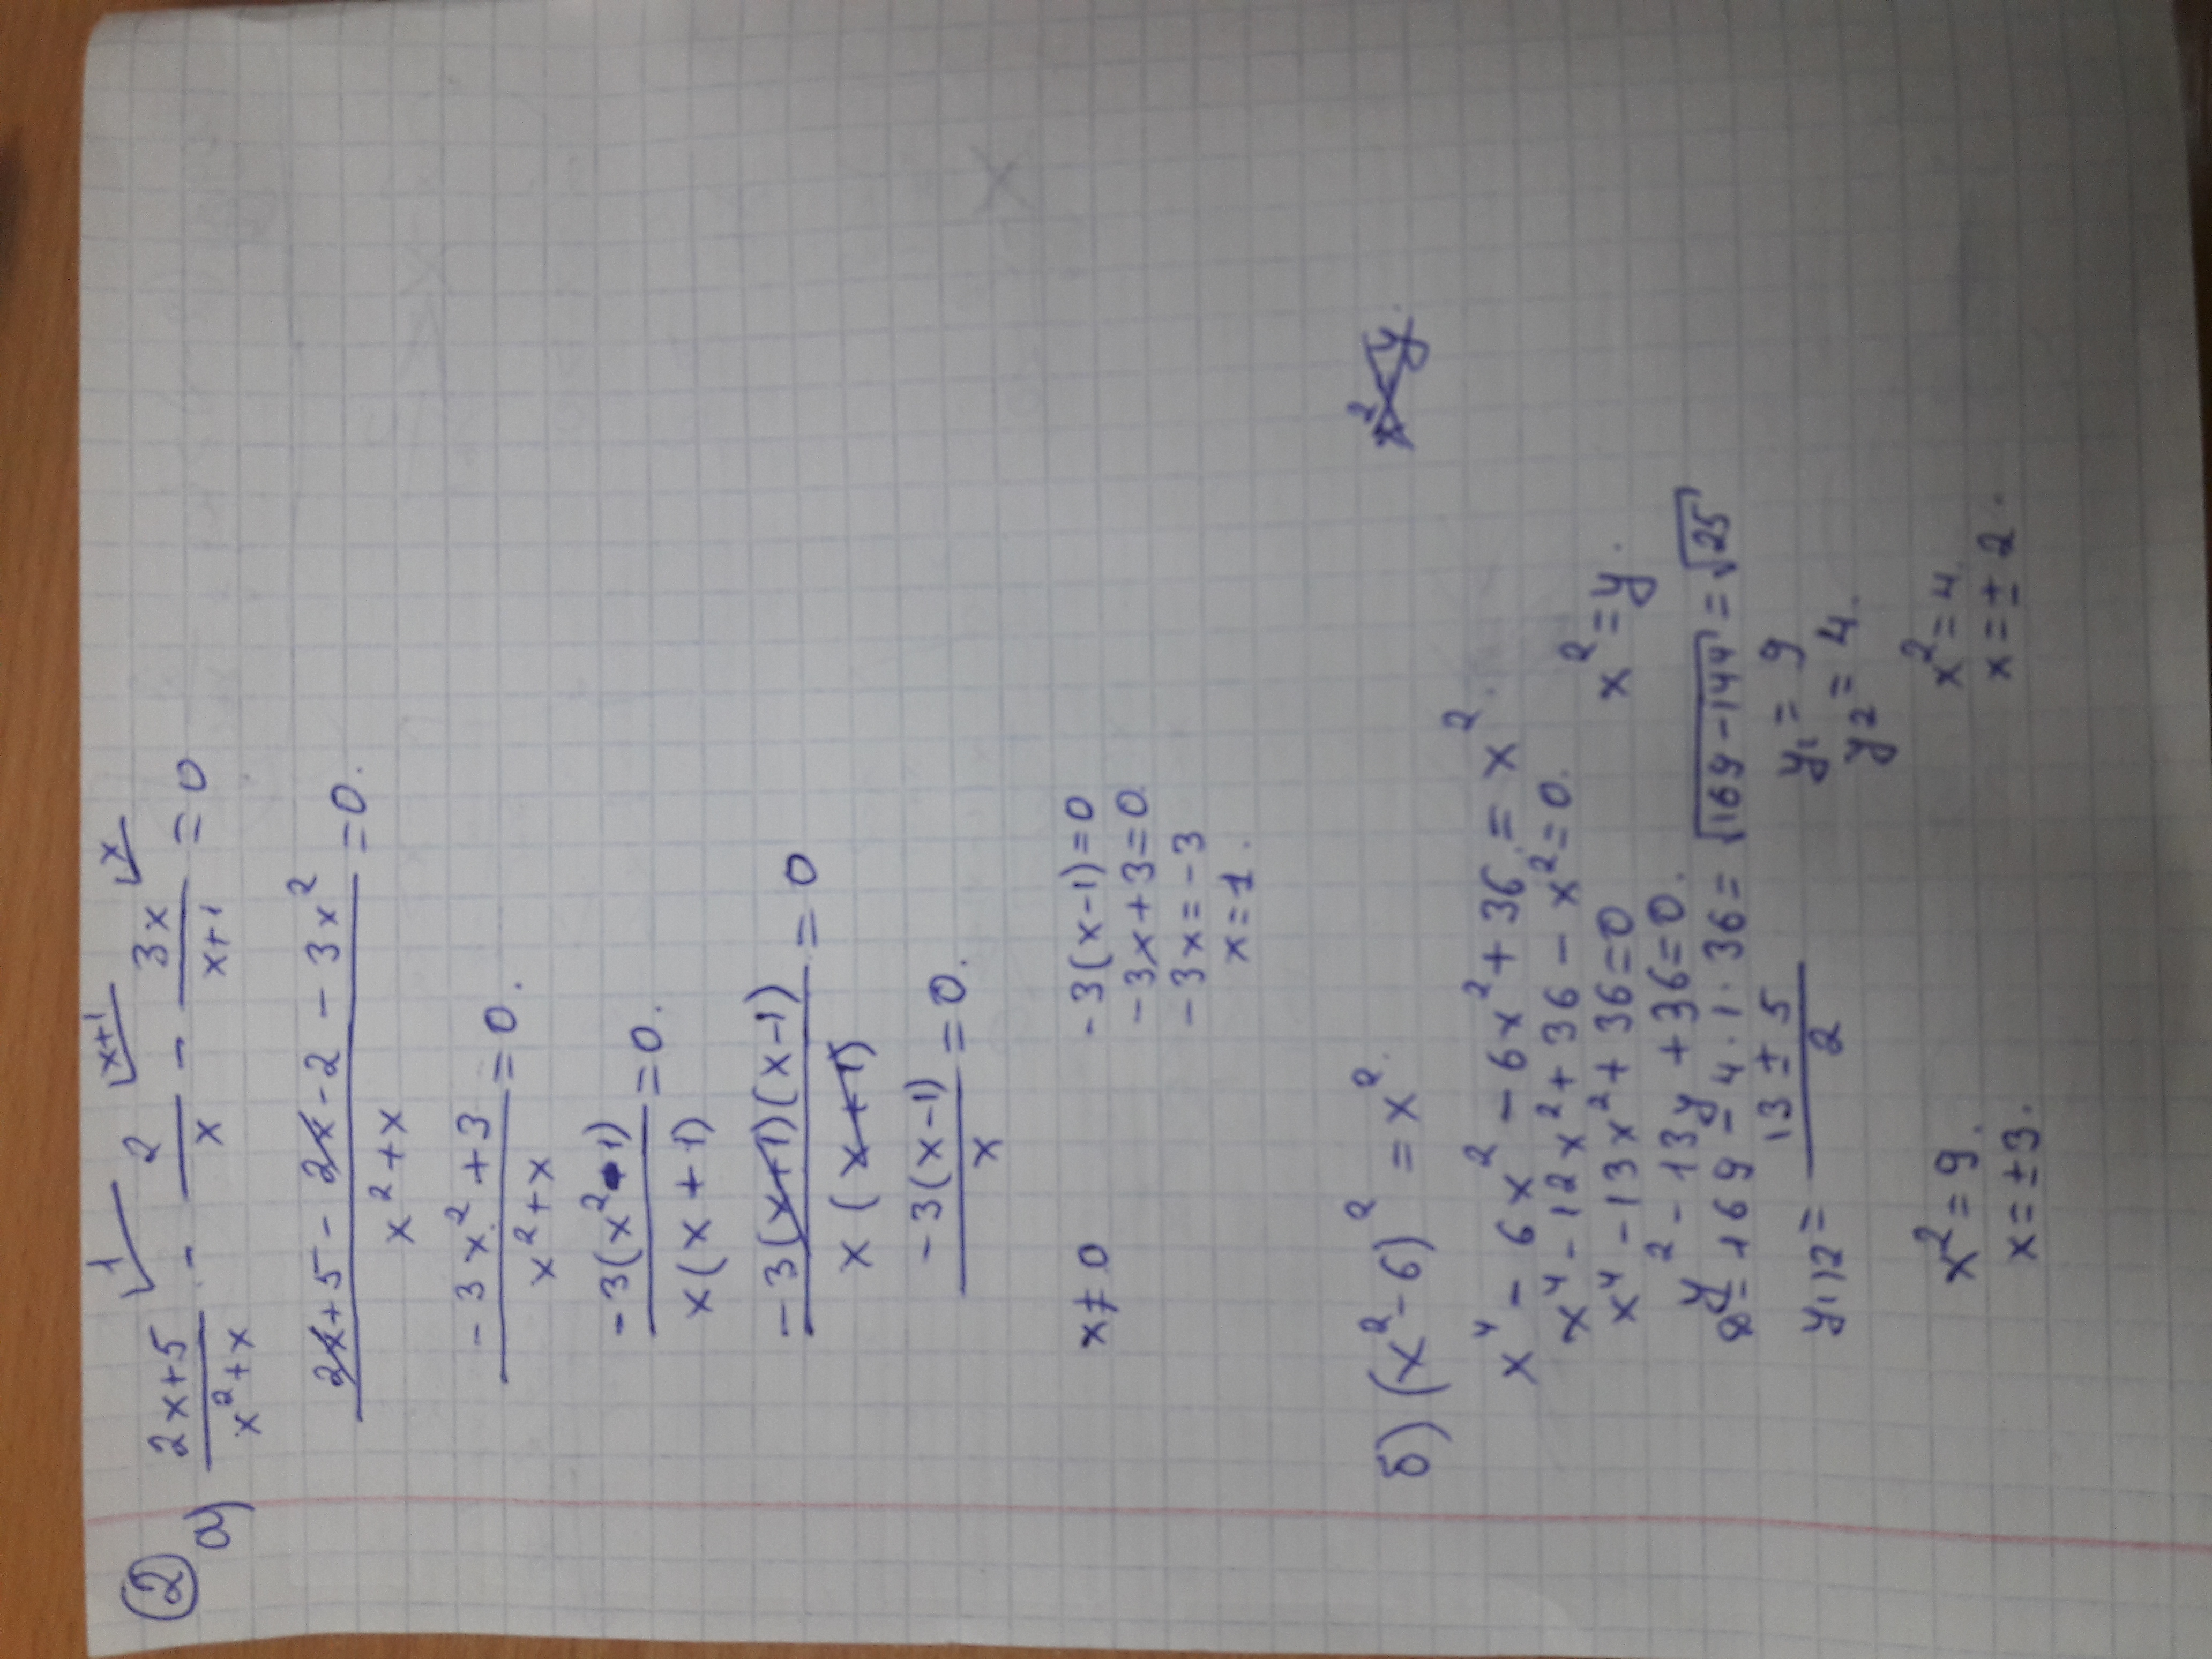 ②
а) (2x+5)/(x²+x) ⟍1 - 2/x ⟍x+1 - 3x/(x+1) ⟍x = 0
(2x+5-2x-2-3x²)/(x²+x) = 0.
(-3x²+3)/(x²+x) = 0.
-3(x²-1)/(x(x+1)) = 0.
-3(x+1)(x-1)/(x(x+1)) = 0
-3(x-1)/x = 0.
x≠0 -3(x-1)=0
-3x+3=0
-3x=-3
x=1.
б) (x²-6)² = x². x²=y.
x⁴-6x²-6x²+36=x².
x⁴-12x²+36-x²=0.
x⁴-13x²+36=0 x²=y.
y²-13y+36=0.
D=169-4·1·36=√169-144=√25
y₁,₂=(13±5)/2 y₁=9
y₂=4.
x²=9. x²=4.
x=±3. x=±2.